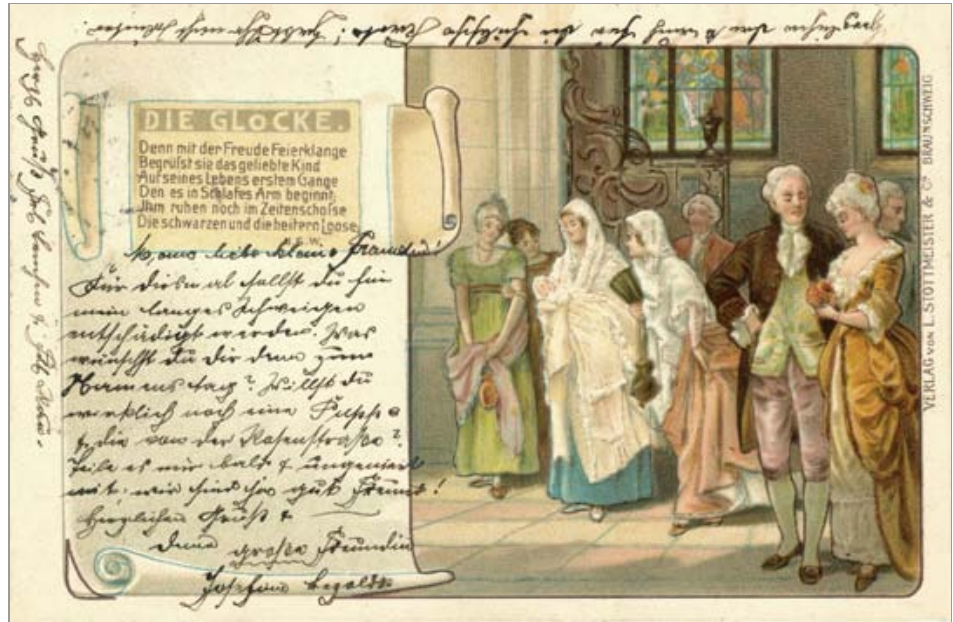 DIE GLOCKE.
Denn mit der Freude Feierklange
Begrüfst sie das geliebte Kind
Auf seines Lebens erstem Gange
Den es in Schlafes Arm beginnt;
Jhm ruhen noch im Zeitenschofse
Die schwarzen und die heitern Loose
meine liebe kleine Freundin!
Für diesmal sollst du für
mein langes Schweigen
entschädigt werden. Was
wünschst du dir denn zum
Namenstag? Willst du
wirklich noch eine Puppe
die von der Rosenstraße?
Teile es mir bald & ungeniert
mit. wir sind ja gute Freunde!
Herzlichen Gruß &
Deine große Freundin
Josefine
VERLAG VON L. STOTTMEISTER & Co BRAUNSCHWEIG